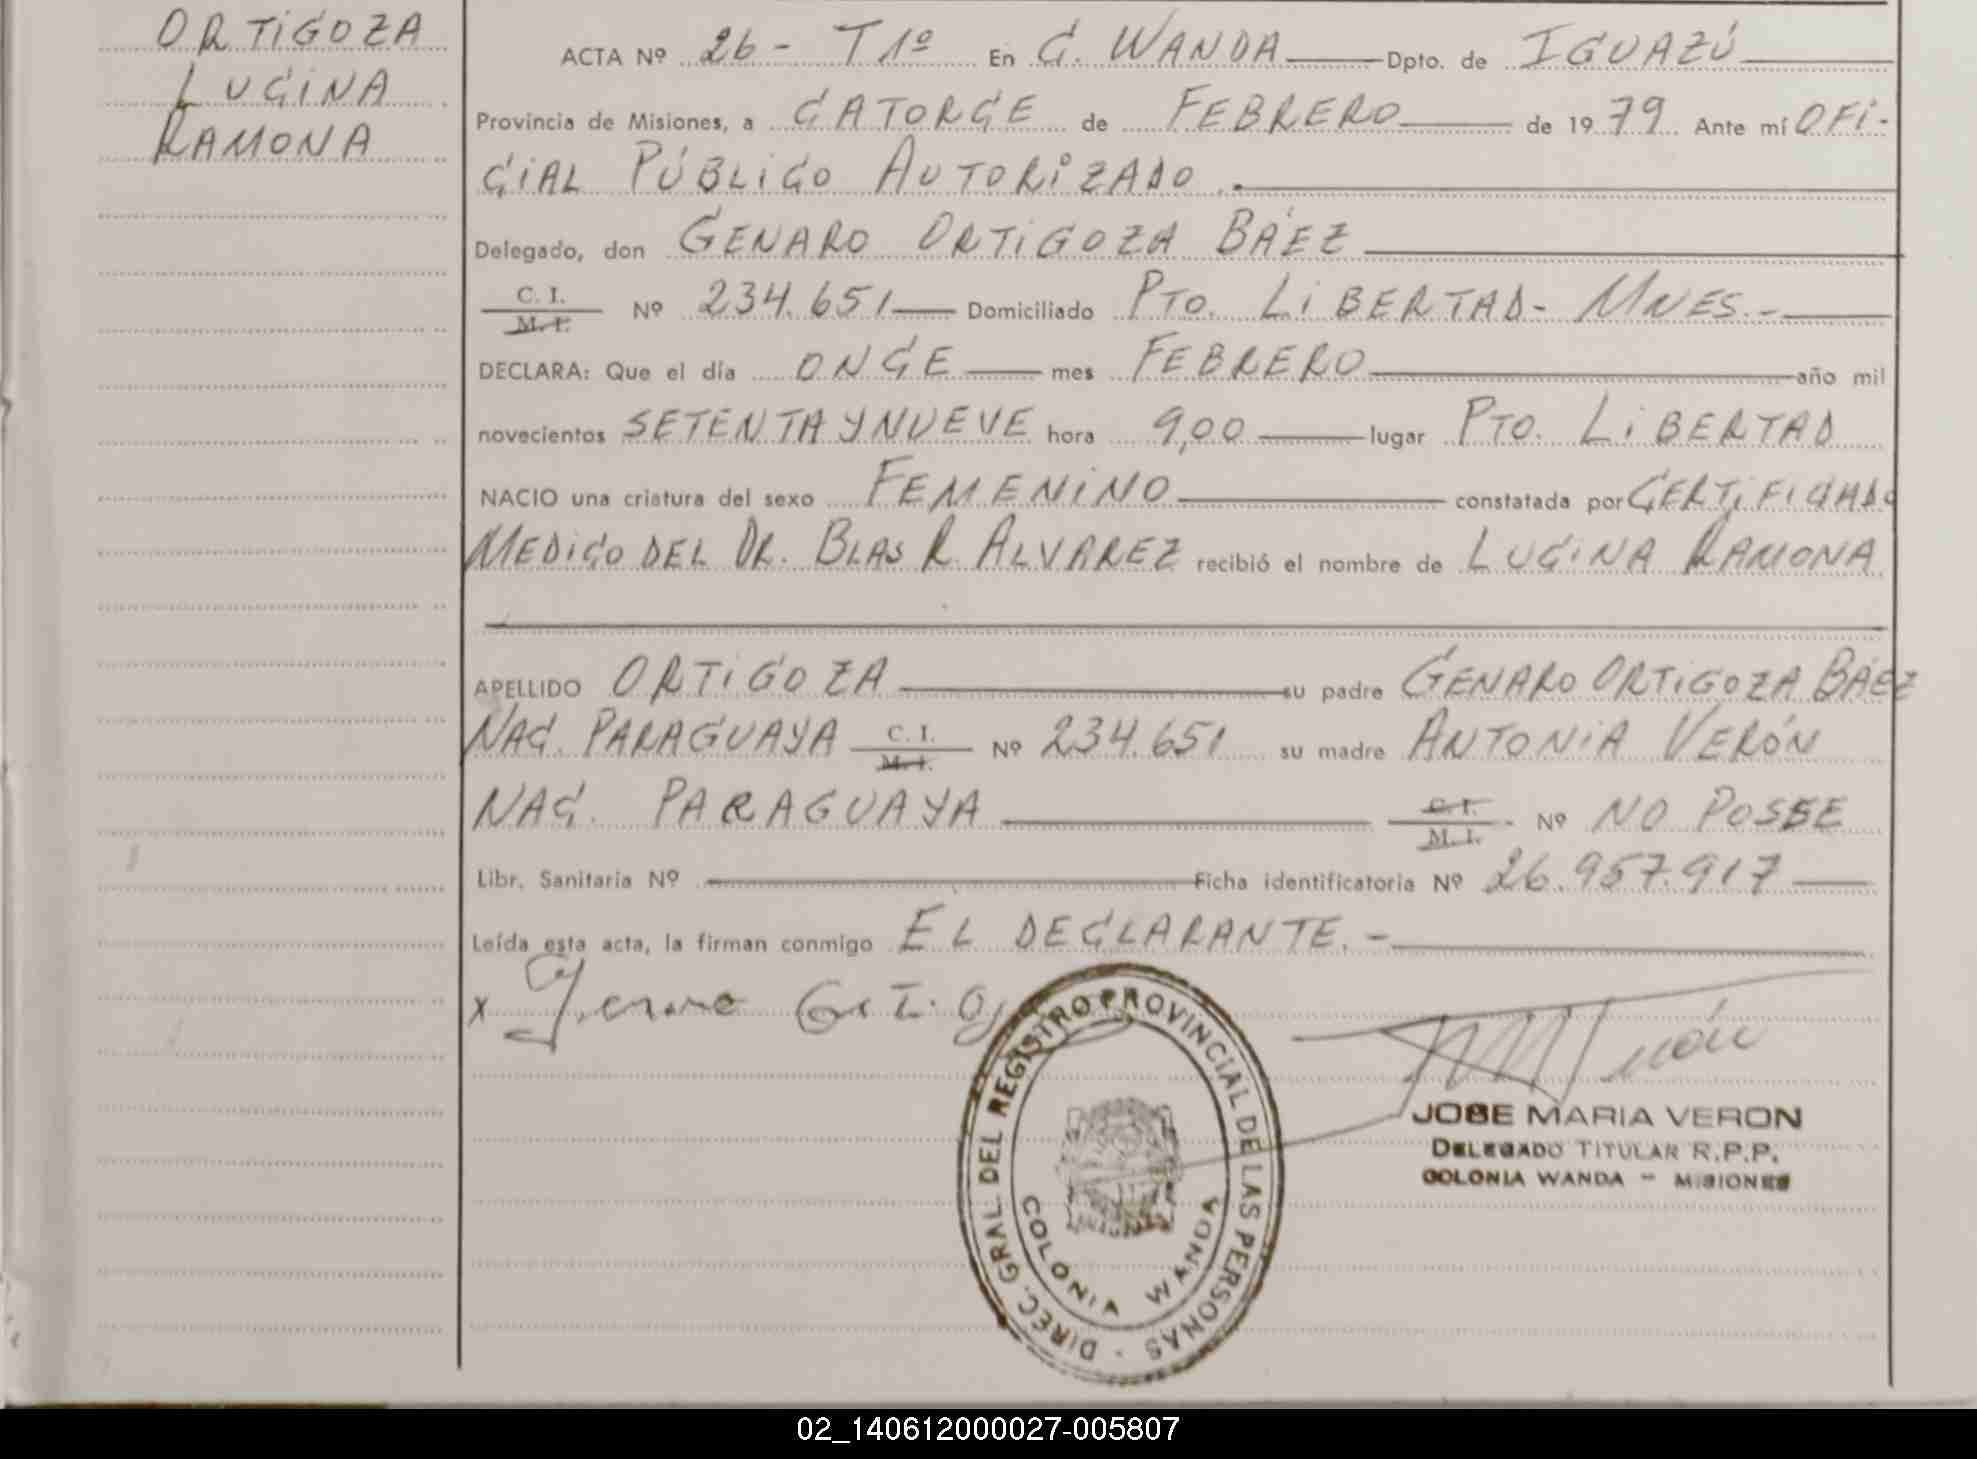 ORTIGOZA
LUCINA
RAMONA
ACTA Nº 26 - T 1º En C. WANDA Dpto. de IGUAZÚ
Provincia de Misiones, a CATORCE de FEBRERO de 1979 Ante mí OFI-
CIAL PÚBLICO AUTORIZADO.
Delegado, don GENARO ORTIGOZA BÁEZ
C. I.
M. I. Nº 234.651 Domiciliado PTO. LIBERTAD - MNES. -
DECLARA: Que el día ONCE mes FEBRERO año mil
novecientos SETENTA Y NUEVE hora 9,00 lugar PTO. LIBERTAD
NACIO una criatura del sexo FEMENINO constatada por CERTIFICADO
MEDICO DEL DR. BLAS R. ALVAREZ recibió el nombre de LUCINA RAMONA
APELLIDO ORTIGOZA su padre GENARO ORTIGOZA BÁEZ
NAC. PARAGUAYA C. I. M. I. Nº 234.651 su madre ANTONIA VERÓN
NAC. PARAGUAYA C. I. M. I. Nº NO POSEE
Libr. Sanitaria Nº Ficha identificatoria Nº 26.957.917
Leída esta acta, la firman conmigo EL DECLARANTE. -
x
DIREC. GRAL DEL REGISTRO PROVINCIAL DE LAS PERSONAS -
COLONIA WANDA
JOSE MARIA VERON
DELEGADO TITULAR R.P.P.
COLONIA WANDA - MISIONES
02_140612000027-005807